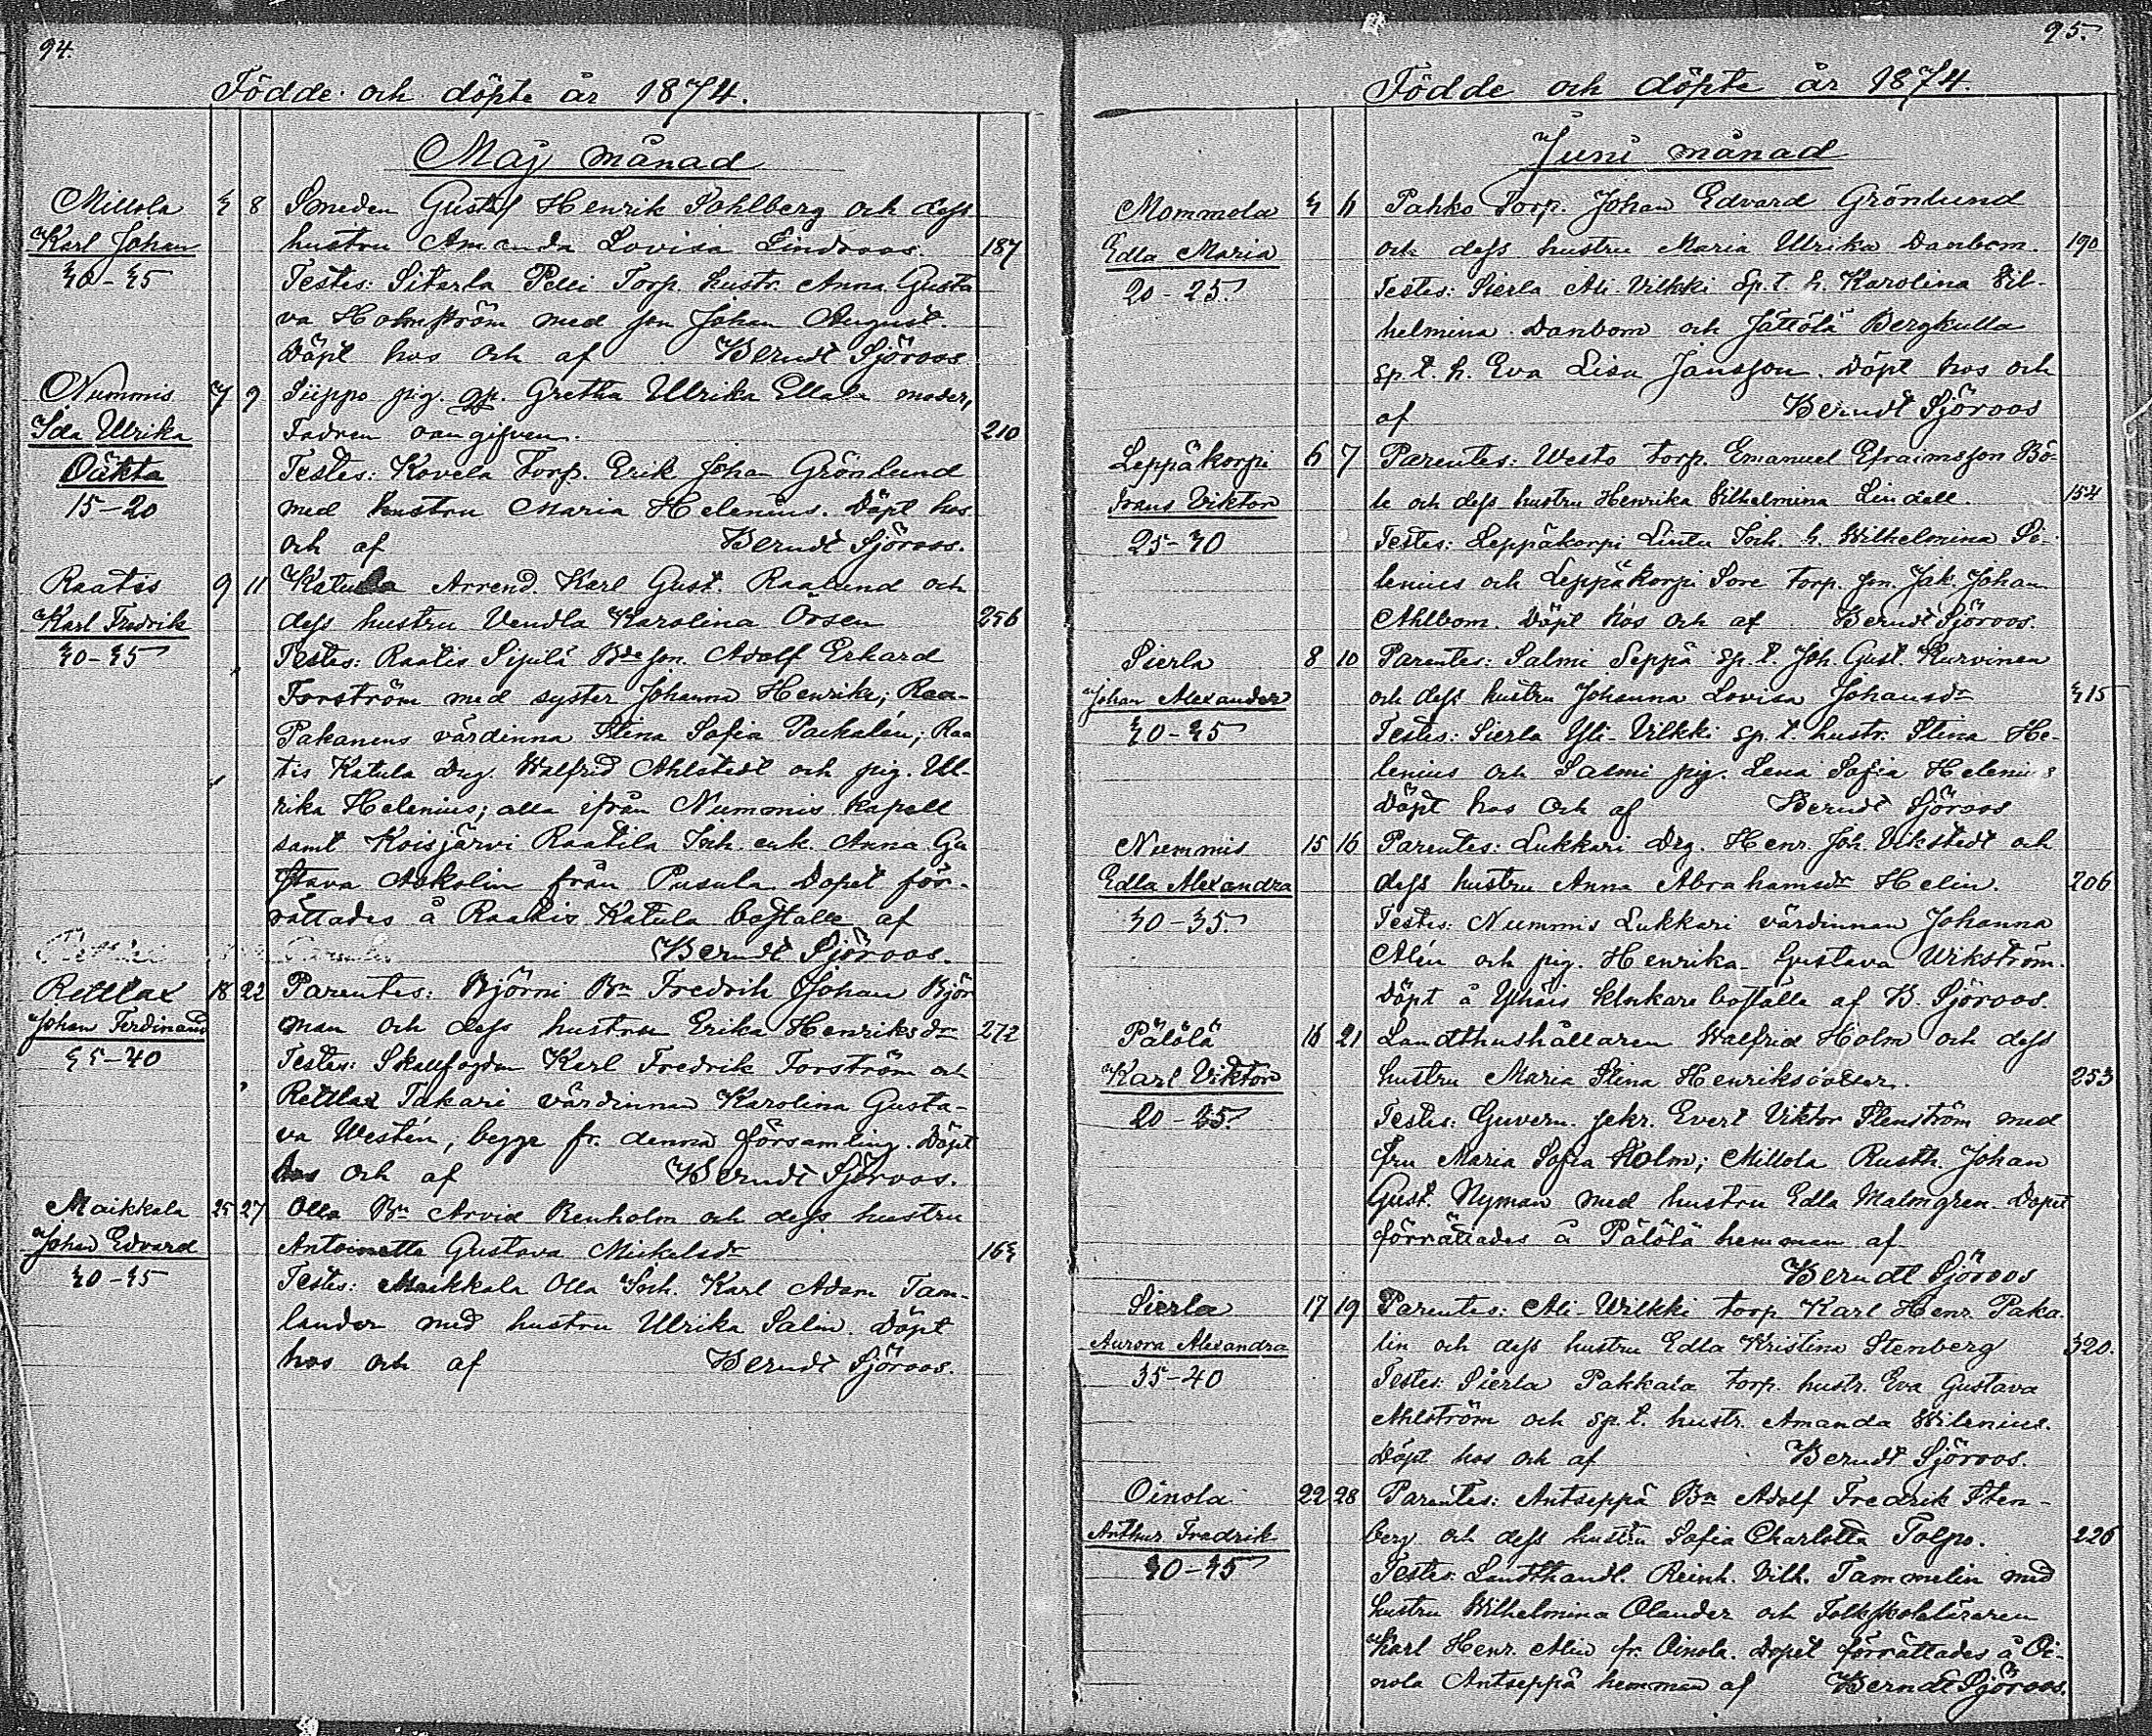 94.
Födde och döpte år 1874.
Maj månad
Millola 3 8 Smeden Gustaf Henrik Sahlberg och dess
Karl Johan hustru Amanda Lovisa Lindroos. 187
30-35 Testes: Sitarla Pelli Torp. hustr. Anna Gusta
va Holmström med son Johan August.
Döpt hos och af Berndt Sjöroos
Nummis 7 9 Siippo pig. Gretha Ulrika Ellala moder,
Ida Ulrika Fadren oangifven. 210
Oäkta Testes: Kovela Torp. Erik Johan Grönlund
15-20 med hustru Maria Helenius. Döpt hos
och af Berndt Sjöroos.
Raatis 9 11 Katula Arrend. Karl Gust. Raalund och
Karl Fredrik dess hustru Vendla Karolina Örsen 256
30-35 Testes: Raatis Sipilä Bde son. Adolf Erhard
Forström med syster Johanna Henrika; Raa-
Pakanens värdinna Stina Sofia Packalén; Raa
tis Katula drg. Walfrid Ahlstedt och pig. Ul-
rika Helenius; alla ifrån Nummis kapell
samt Koisjärvi Raatila Inh. enk. Anna Gu
stava Askolin från Pusula. Dopet för-
rättades å Raatis Katula boställe af
Berndt Sjöroos.
Retlax 18 22 Parentes: Björni Bn Fredrik Johan Björ
Johan Ferdinand man och dess hustru Erika Henriksdr 272
35-40 Testes: Skallfogden Karl Fredrik Forström och
Retlax Takari värdinnan Karolina Gusta-
va Westén, begge fr. denna församling. Döpt
hos och af Berndt Sjöroos.
Maikkala 25 27 Olla Bn Arvid Renholm och dess hustru
Johan Edvard Antoinetta Gustava Mickelsdr 163
30-35 Testes: Maikkala Olla Inh. Karl Adam Tam-
lander med hustru Ulrika Salin. Döpt
hos och af Berndt Sjöroos.
95.
Födde och döpte år 1874.
Juni månad
Mommola 3 6 Pahko Torp. Johan Edvard Grönlund
Edla Maria och dess hustru Maria Ulrika Danbom. 190
20-25. Testes: Sierla Ali-Vilkki Sp. t. h. Karolina Vil-
helmina Danbom och Jättölä Bergkulla
sp. t. h. Eva Lisa Jansson. Döpt hos och
af Berndt Sjöroos
Leppäkorpi 6 7 Parentes: Westo torp. Emanuel Efraimsson Bö-
Frans Viktor le och dess hustru Henrika Vilhelmina Lindell. 154
25-30 Testes: Leppäkorpi Lintu Inh. h. Wilhelmina Se-
lenius och Leppäkorpi Sore torp. son. Jak. Johan
Ahlbom. Döpt hos och af Berndt Sjöroos.
Sierla 8 10 Parentes: Salmi Seppä sp. t. Joh. Gust. Kurvinen
Johan Alexander och dess hustru Johanna Lovisa Johansdr 315
30-35 Testes: Sierla Yli-Vilkki sp. t. hustr. Stina He-
lenius och Salmi pig. Lena Sofia Helenius
Döpt hos och af Berndt Sjöroos
Nummis 15 16 Parentes: Lukkari Drg. Henr. Joh. Vikstedt och
Edla Alexandra dess hustru Anna Abrahamsdr Helin. 206
30-35. Testes: Nummis Lukkari värdinnan Johanna
Alén och pig. Henrika Gustava Wikström.
Döpt å Yhäis klockare boställe af B. Sjöroos.
Pälölä 16 21 Landthushållaren Walfrid Holm och dess
Karl Viktor hustru Maria Stina Henriksdotter. 253
20-25. Testes: Guvern. sekr. Evert Viktor Stenström med
fru Maria Sofia Holm; Millola Rusth. Johan
Gust. Nyman med hustru Edla Malmgren. Dopet
förrättades å Pälölä hemman af
Berndt Sjöroos
Sierla 17 19 Parentes: Ali-Wilkki torp Karl Henr. Paka-
Aurora Alexandra lin och dess hustru Edla Kristina Stenberg 320.
35-40 Testes: Sierla Pakkala torp. hustr. Eva Gustava
Ahlström och sp. t. hustr. Amanda Wilenius.
Döpt hos och af Berndt Sjöroos.
Oinola 22 28 Parentes: Antseppä Bn Adolf Fredrik Sten-
Arthur Fredrik berg och dess hustru Sofia Charlotta Tolpo. 226
30-35 Testes: Landthandl. Reinh. Vilh. Tammelin med
hustru Wilhelmina Olander och Folkskoleläraren
Karl Henr. Alin fr. Oinola. Dopet förrättades å Oi-
nola Antseppä hemman af Berndt Sjöroos.